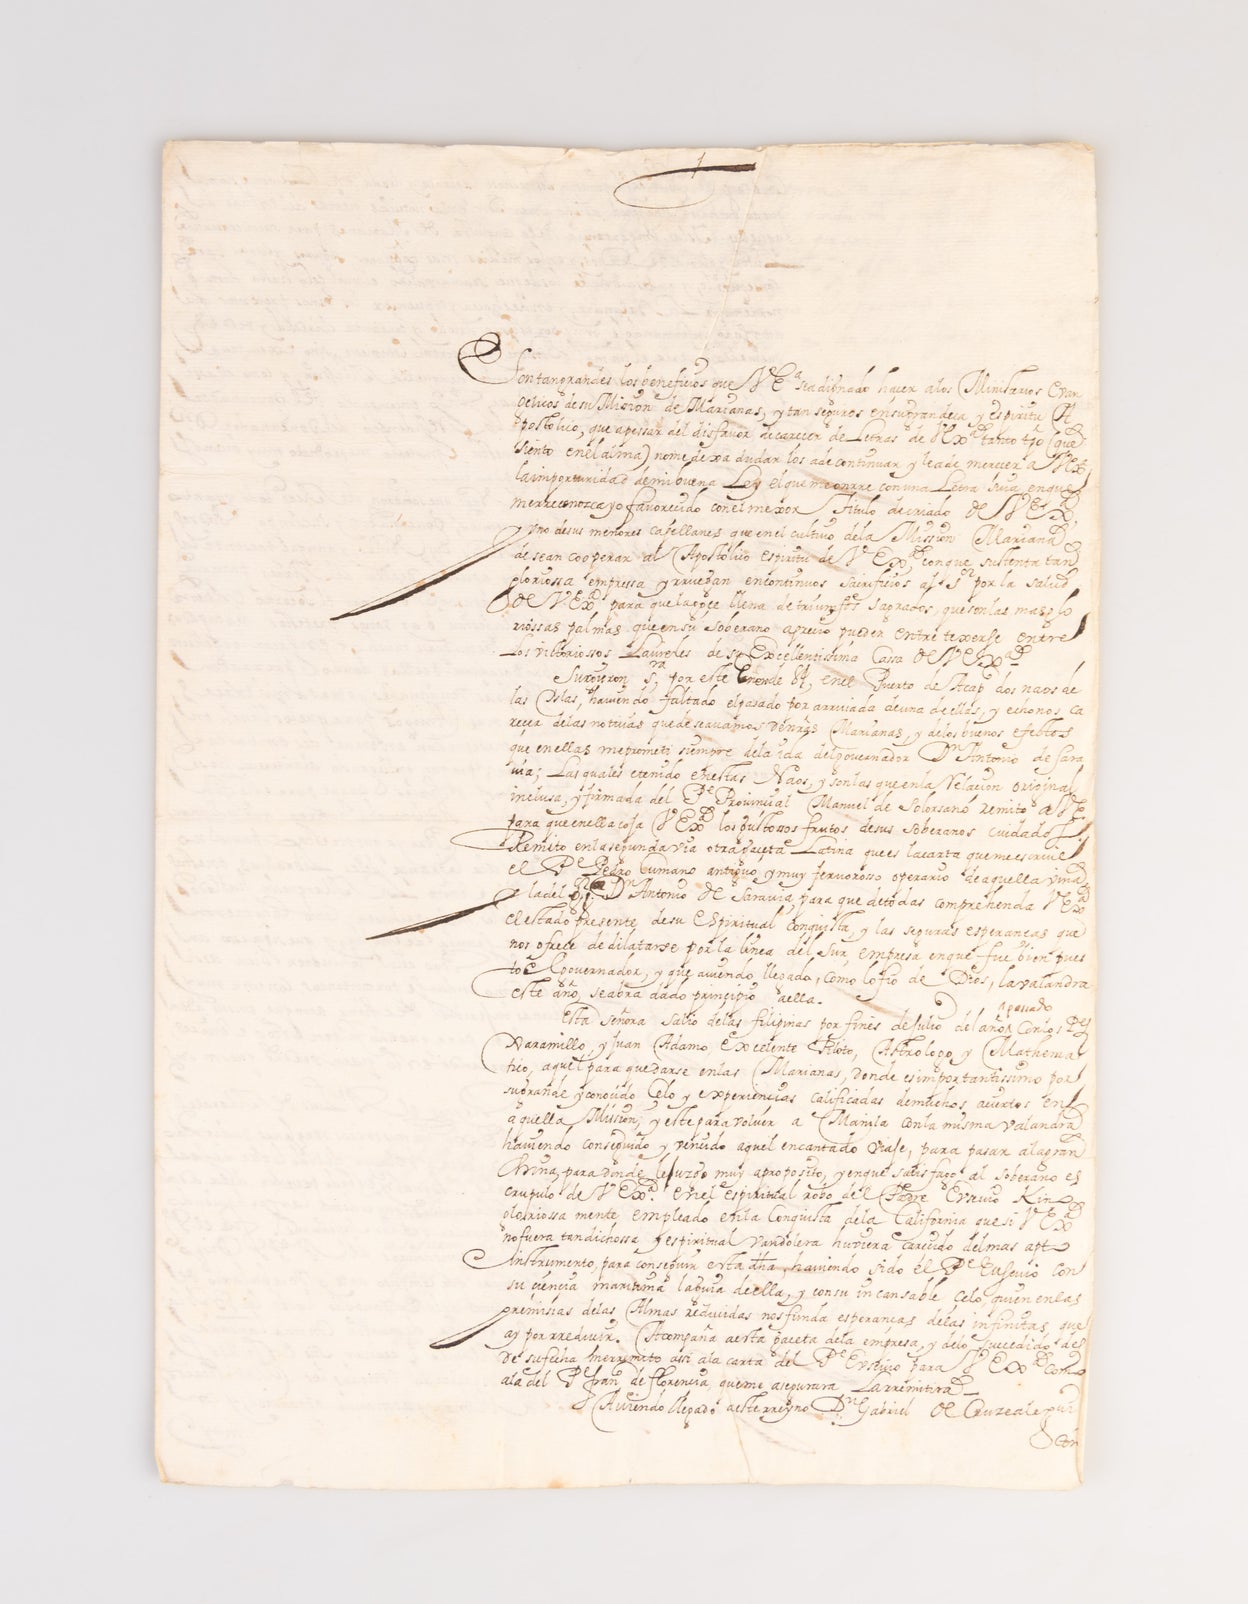 Son tan grandes los beneficios que V E.ª se a dignado hacer a los Ministrios Evan
gelicos de su Mision de Marianas, y tan seguros en su grandeça y espiritu A
postolico, que apessar del disfavor de carecer de Letras de V Ex.ª (que
siento en el alma) no me dexa dudar los a de continuar y le a de merecer a V Ex.ª
la importunidad de mi buena Ley el que me onrre con una Letra suia en que
me rreconozca yo favorecido con el mexor Titulo de criado de V Ex.ª
y uno de sus menores capellanes que en el cultivo de la Mission Mariana
desean cooperar al Apostolico espiritu de V Ex.ª conque sustenta tan
gloriossa empressa y rruegan en continuos sacrificios a n.º S.r por la salud
de V. Ex.ª para que la goçe llena de triumfos sagrados, que son las mas glo
riossas palmas que en su soberano aprecio pueden entretexerse entre
los victoriossos Laureles de su Excellentissima Cassa de V Ex.ª
Surgieron S.ra por este de 84, en el Puerto de Acap.º dos naos de
las Islas, haviendo faltado el pasado por arrivada de una de ellas, y echonos ca
recer de las noticias que deseavamos de nr̃as Marianas, y de los buenos efectos
que en ellas me prometi siempre de la ida del governador D.n Antonio de Sara
via; Las quales e tenido en estas Naos, y son las que en la Relacion original
inclusa, y firmada del P.e Provincial Manuel de Solorsano remito a V E.
para que en ella coja V Ex.ª los gustossos frutos de sus soberanos cuidados.
Remito en la segunda via otra gaçeta Latina que es la carta que me escrive
el P.e Pedro Cumano antiguo, y muy fervorosso operario de aquella viña
y la del D.n Antonio de Saravia, para que de todas comprehenda V Ex.ª
el estado presente de su Espiritual Conquista, y las seguras esperanças que
nos ofrece de dilatarse por la linea del Sur, empresa en que fue bien pues
to el governador, y que aviendo llegado, como lo fio de Dios, la valandra
este año, se abra dado principio a ella.
Esta señora salio de las filipinas por fines de Julio del año passado con los P.es
Xaramillo, y Juan Adamo Excelente Piloto, Astrologo, y Mathema
tico, aquel para quedarse en las Marianas, donde es importantissimo por
su grande y conocido Celo y experiencias calificadas de muchos aciertos en
aquella Mission; y este para volver a Manila con la misma valandra
haviendo conseguido y vencido aquel encantado viaje, para pasar a la gran
China, para donde le juzgo muy aproposito, y en que satisfago al soberano es
crupulo de V Ex.ª en el espiritual robo del Padre Eusevio Kino
gloriossa mente empleado en la Conquista de la California que si V Ex.ª
no fuera tan dichossa y espiritual vandolera huviera carecido del mas apto
instrumento, para conseguir esta dha, haviendo sido el P.e Eusevio con
su ciencia maritima la guia de ella, y con su incansable Celo, quien en las
premisias de las Almas reducidas nos funda esperanças de las infinitas que
ay por rreducir. Acompaña a esta gaceta de la empresa, y de lo sucedido des
de su fecha me rremito assi a la carta del P.e Eusevio para V Ex.ª como
a la del P.e fran.co de florencia, que me asegurara La rremitira
Aviendo llegado a este rreyno D.n Gabriel de Cruzealegui
con